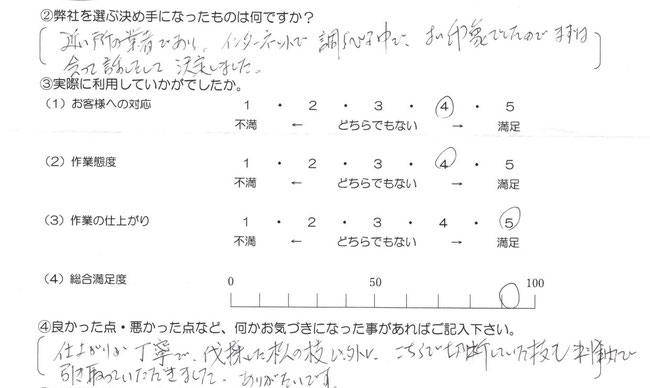 ②弊社を選ぶ決め手になったものは何ですか?
近い所の業者であり、インターネットで調べる中で、良い印象でしたのでまずは
会って話をして決定しました。
③実際に利用していかがでしたか。
(1)お客様への対応 1 ・ 2 ・ 3 ・ 4 ・ 5
不満 ← どちらでもない → 満足
(2)作業態度 1 ・ 2 ・ 3 ・ 4 ・ 5
不満 ← どちらでもない → 満足
(3)作業の仕上がり 1 ・ 2 ・ 3 ・ 4 ・ 5
不満 ← どちらでもない → 満足
(4)総合満足度 0 50 100
④良かった点・悪かった点など、何かお気づきになった事があればご記入下さい。
仕上がりが丁寧で、伐採した木の枝以外に、こちらで切断していた枝も
引き取っていただきました。ありがたいです。